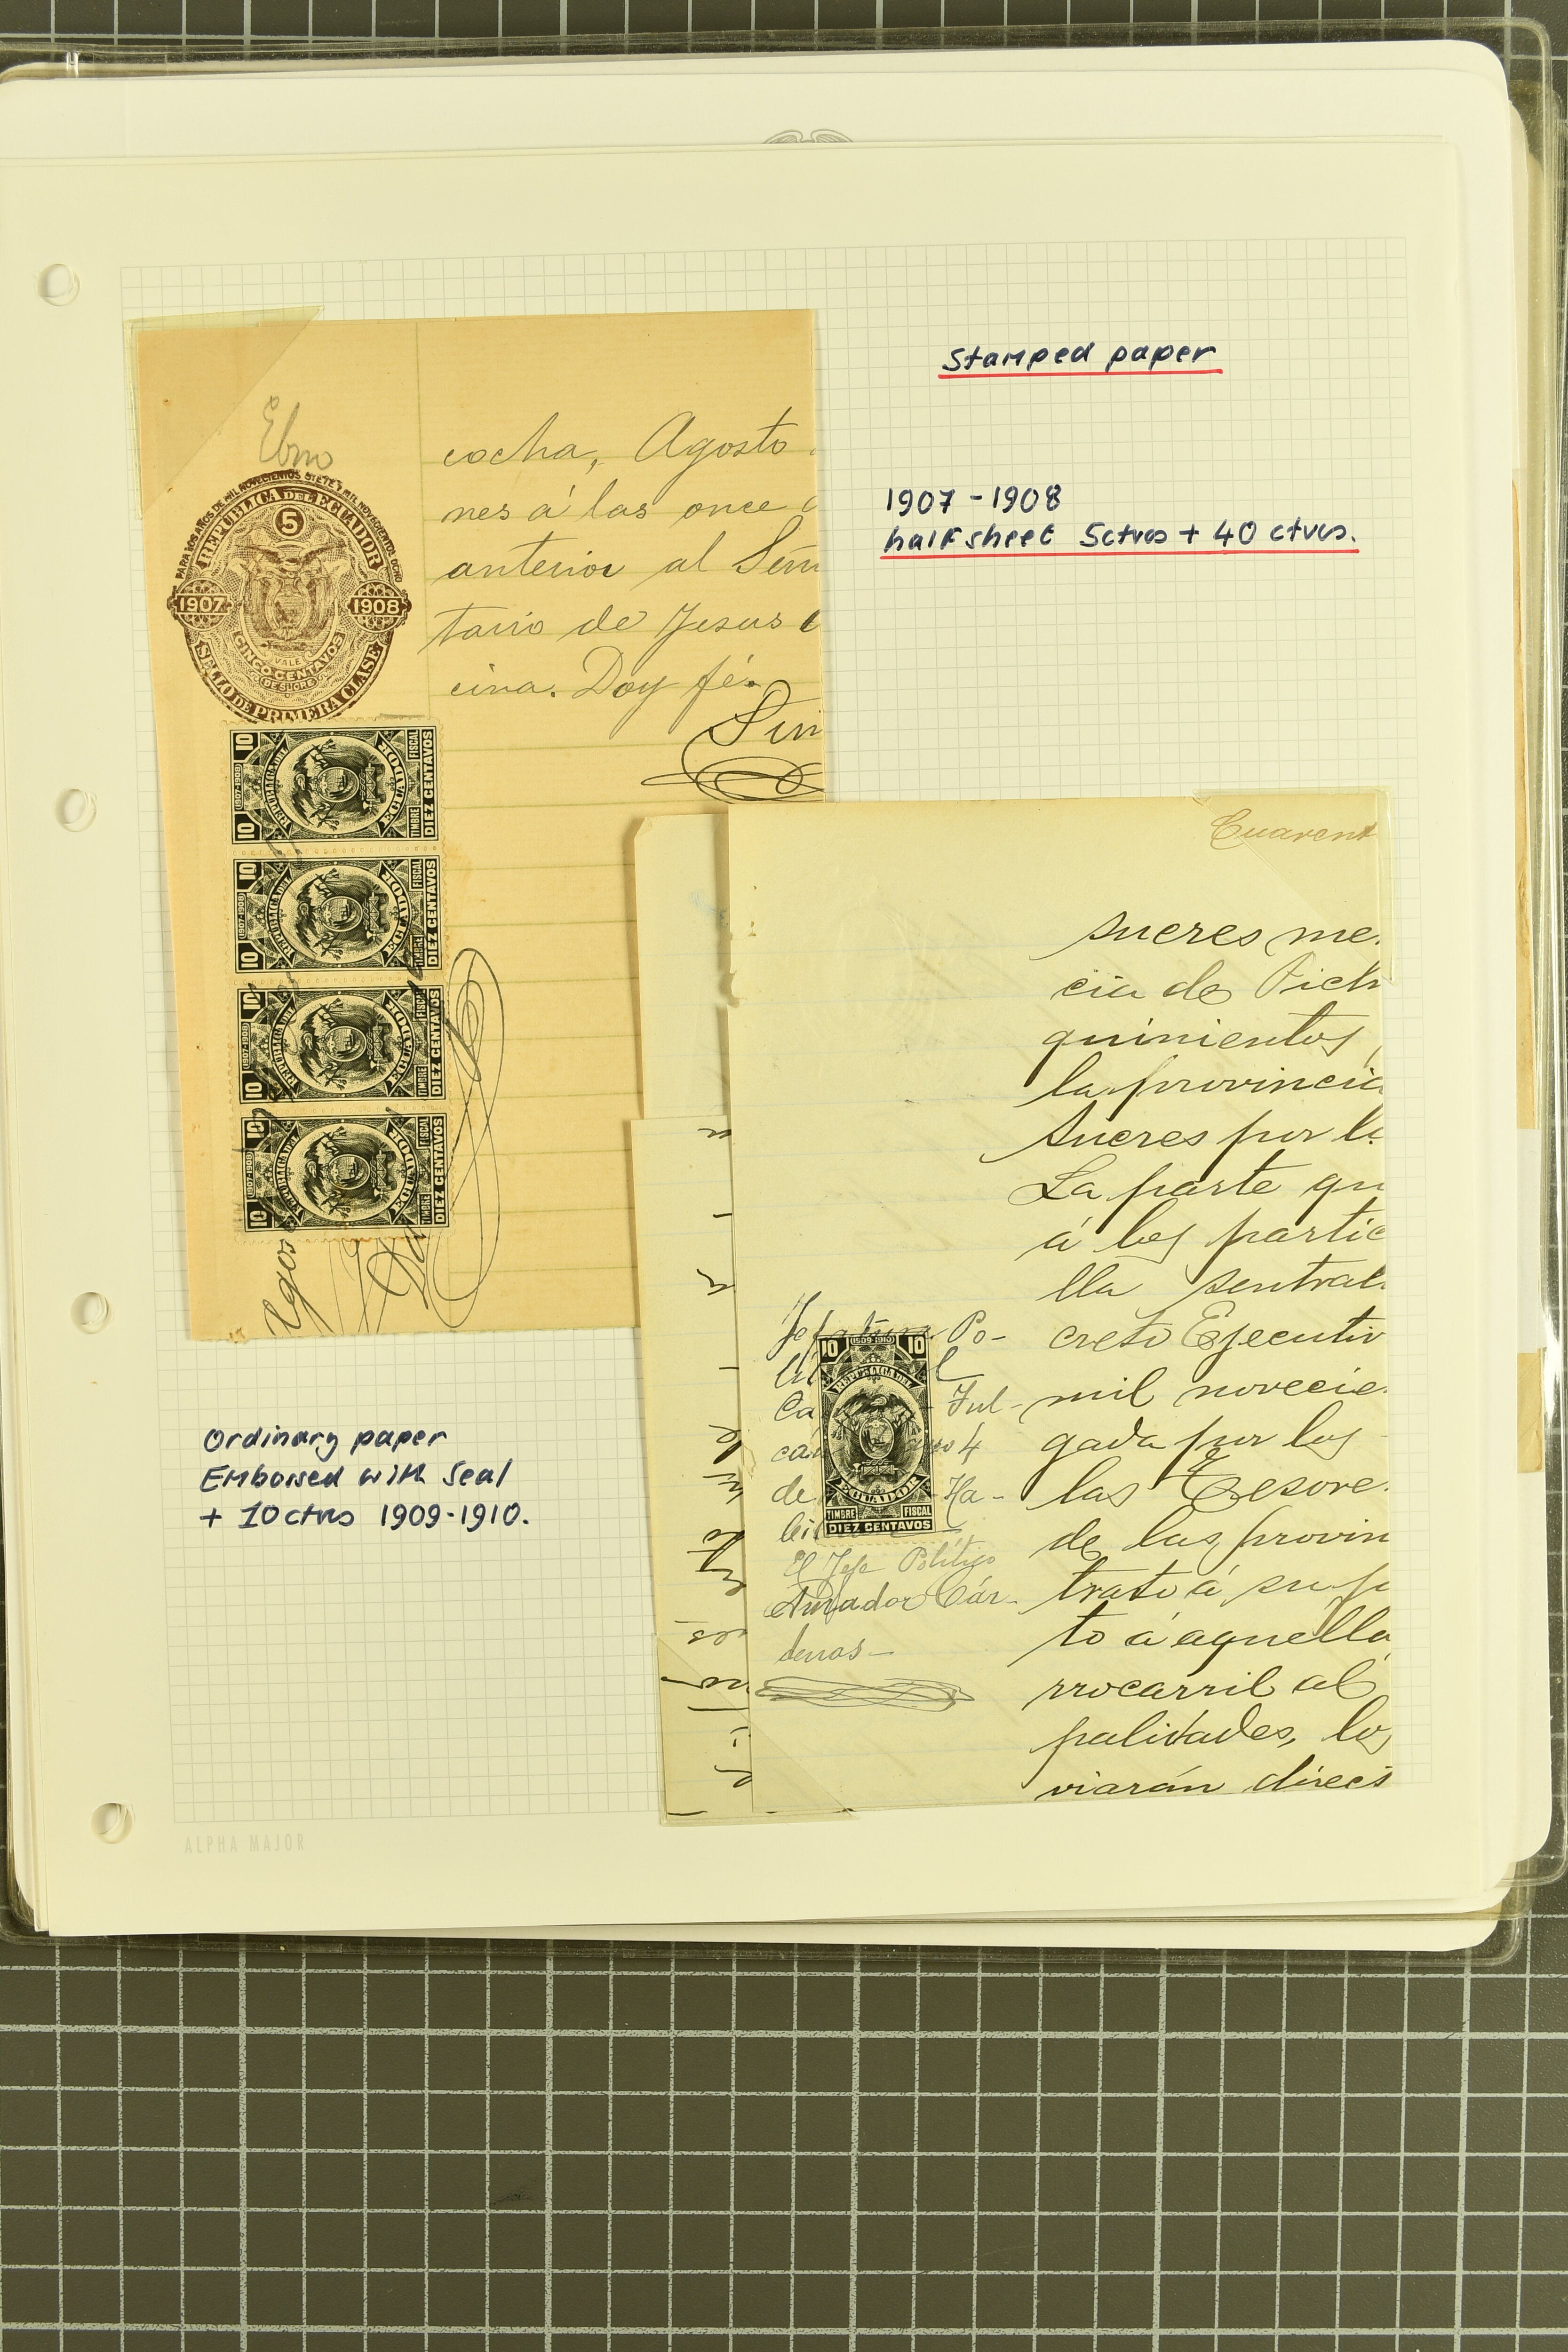 Stamped paper
1907 - 1908
half sheet 5ctvos + 40 ctvos.
PARA LOS AÑOS DE MIL NOVECIENTOS SIETE Y MIL NOVECIENTOS OCHO
REPUBLICA DEL ECUADOR
5
1907 1908
VALE
CINCO CENTAVOS
DE SUCRE
SELLO DE PRIMERA CLASE
cocha, Agosto
nes á las once
anterior al
tario de Jesus
cina. Doy fé.
10 10
1907-1908
REPUBLICA DEL
ECUADOR
TIMBRE FISCAL
DIEZ CENTAVOS
10 10
1907-1908
REPUBLICA DEL
ECUADOR
TIMBRE FISCAL
DIEZ CENTAVOS
10 10
1907-1908
REPUBLICA DEL
ECUADOR
TIMBRE FISCAL
DIEZ CENTAVOS
10 10
1907-1908
REPUBLICA DEL
ECUADOR
TIMBRE FISCAL
DIEZ CENTAVOS
Cuarent
sucres me
cia de Pich
quinientos
la provincia
Sucres por l
La parte qu
á los partic
lla sentral
creto Ejecutiv
mil novecie
gada por los
las Tesore
de las provin
trato á su p
to á aquella
rrocarril al
palidades, lo
viarán direct
Po-
Jul-
4
de Ha-
El Jefe Politico
Amador Cár-
denas-
10 1909-1910 10
REPUBLICA DEL
ECUADOR
TIMBRE FISCAL
DIEZ CENTAVOS
Ordinary paper
Embossed with Seal
+ 10ctvos 1909-1910.
ALPHA MAJOR